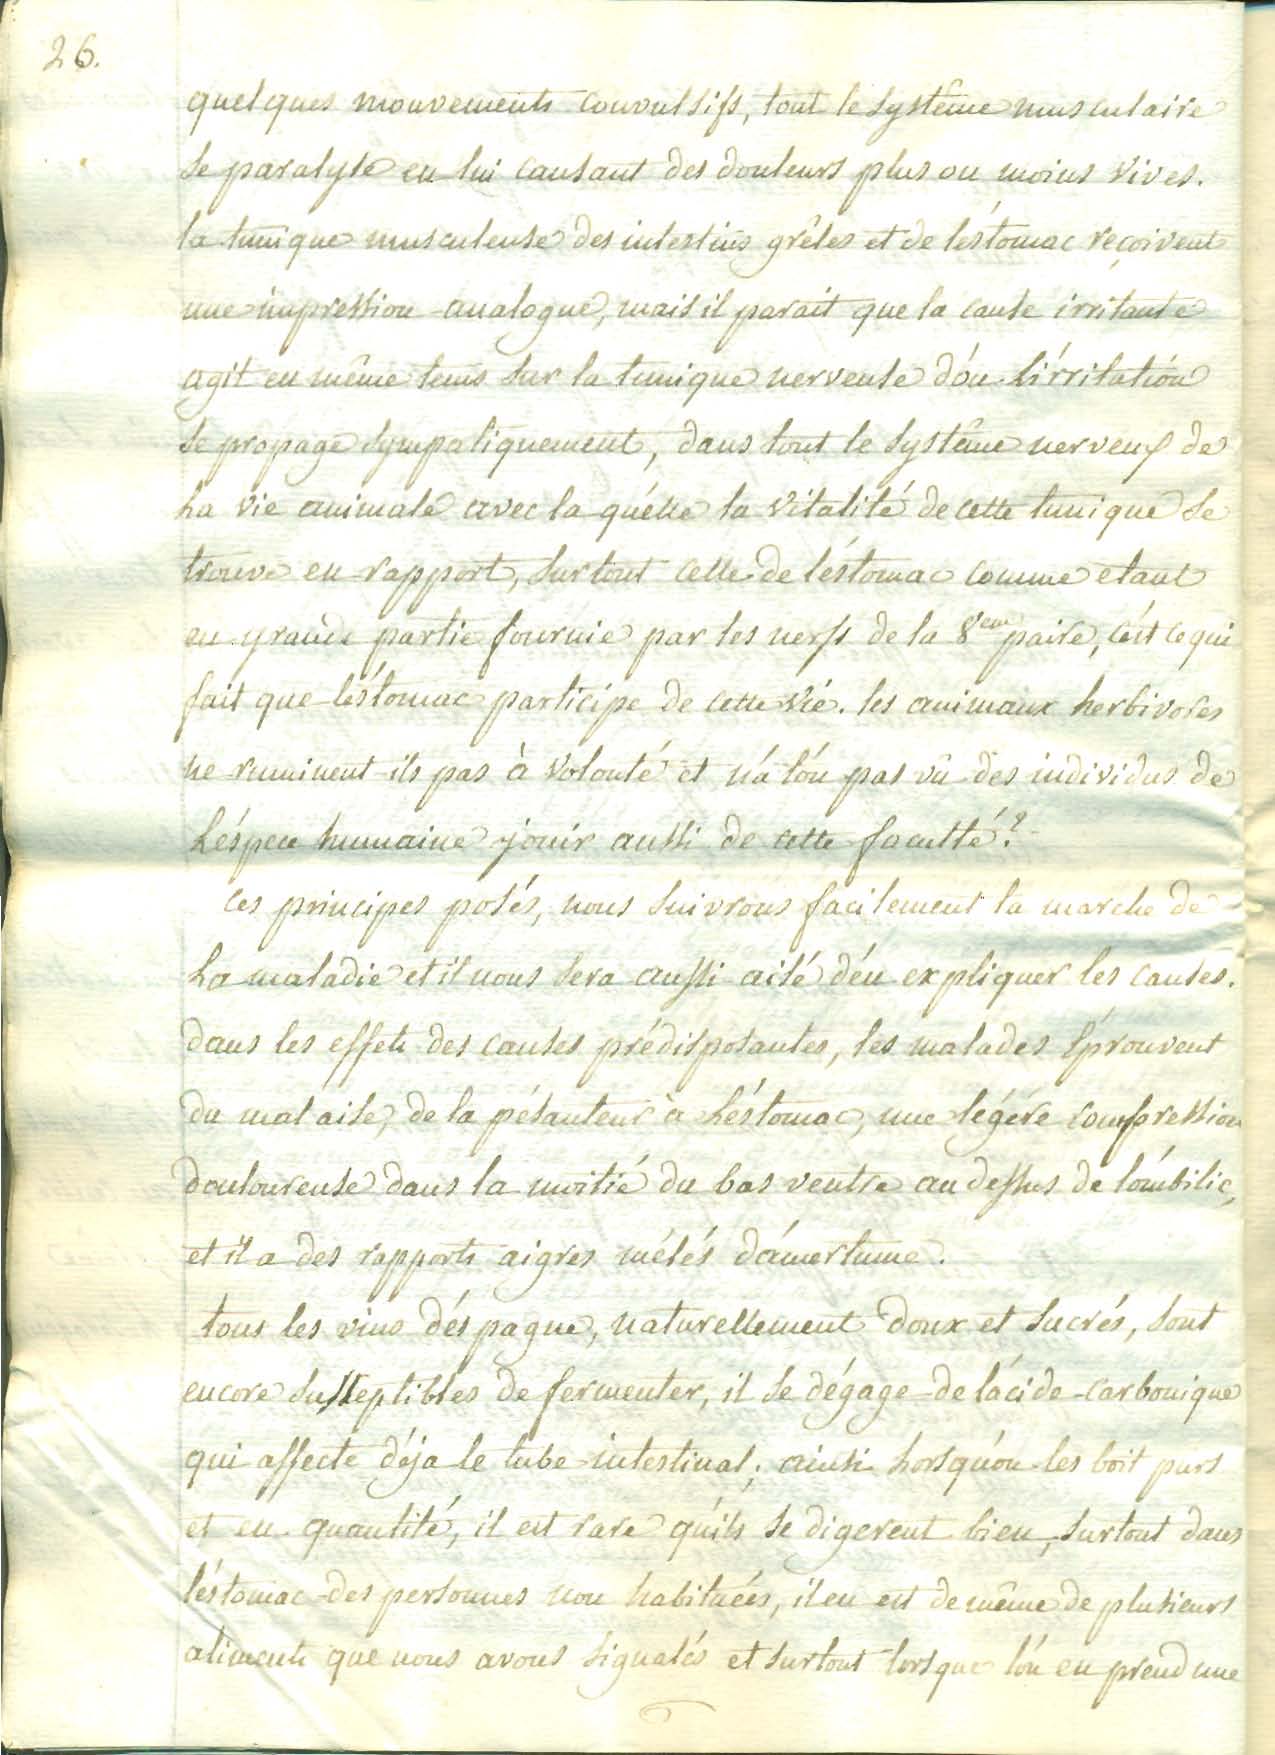 26.
quelques mouvements convulsifs, tout le systême musculaire
se paralyse en lui causant des douleurs plus ou moins vives.
la tunique musculeuse des intestins grêles et de léstomac reçoivent
une impression analogue, mais il parait que la cause irritante
agit en même tems sur la tunique nerveuse d'óu l'írritatión
se propage sympatiquement, dans tout le systême nerveux de
la vie animale avec la quélle la vitalité de cette tunique se
trouve en rapport, surtout celle de léstomac comme etant
en grande partie fournie par les nerfs de la 8eme paire, cést ce qui
fait que léstomac participe de cette vie. les animaux herbivores
ne ruminent ils pas à volonté et ná lón pas vû des individus de
Léspece humaine jouir aussi de cette faculté?
ces principes posés, nous suivrons facilement la marche de
La maladie et il nous sera aussi aisé dén expliquer les causes.
dans les effets des causes prédisposantes, les malades éprouvent
du mal aise, de la pésanteur à Léstomac, une légére compression
douloureuse dans la moitié du bas ventre au dessus de lómbilic,
et il a des rapports aigres mélés dámertume.
tous les vins déspagne, naturellement doux et sucrés, sont
encore susseptibles de fermenter, il se dégage de lácide carbonique
qui affecte déja le tube intestinal; ainsi lorsqu'ón les boit purs
et en quantité, il est rare qu'ils se digerent bien, surtout dans
léstomac des personnes non habituées, il en est de même de plusieurs
aliments que nous avons signalés et surtout lorsque lón en prend une